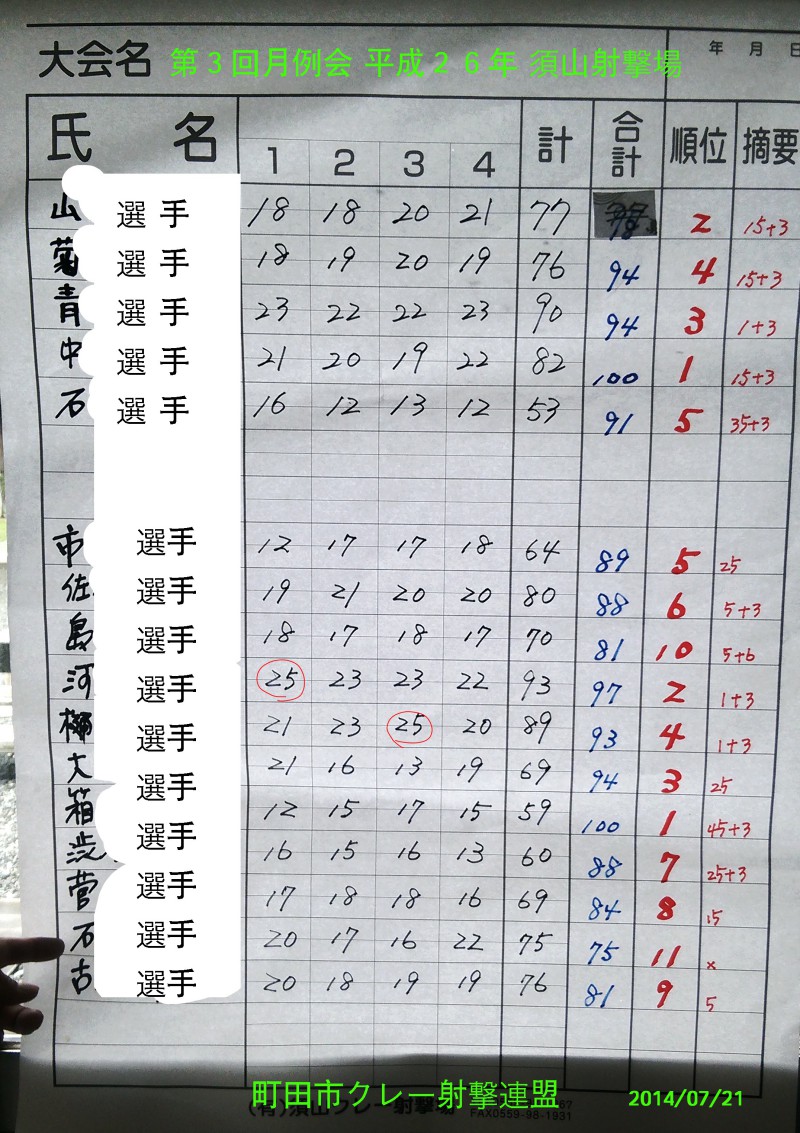 大会名 第3回月例会 平成26年 須山射撃場 年 月 日
氏 名 1 2 3 4 計 合計 順位 摘要
山 選手 18 18 20 21 77 2 15+3
菊 選手 18 19 20 19 76 94 4 15+3
青 選手 23 22 22 23 90 94 3 1+3
中 選手 21 20 19 22 82 100 1 15+3
石 選手 16 12 13 12 53 91 5 35+3
市 選手 12 17 17 18 64 89 5 25
佐 選手 19 21 20 20 80 88 6 5+3
島 選手 18 17 18 17 70 81 10 5+6
河 選手 25 23 23 22 93 97 2 1+3
選手 21 23 25 20 89 93 4 1+3
大 選手 21 16 13 19 69 94 3 25
箱 選手 12 15 17 15 59 100 1 45+3
渋 選手 16 15 16 13 60 88 7 25+3
菅 選手 17 18 18 16 69 84 8 15
石 選手 20 17 16 22 75 75 11 x
古 選手 20 18 19 19 76 81 9 5
町田市クレー射撃連盟 2014/07/21
(有)須山クレー射撃場 FAX0559-98-1931